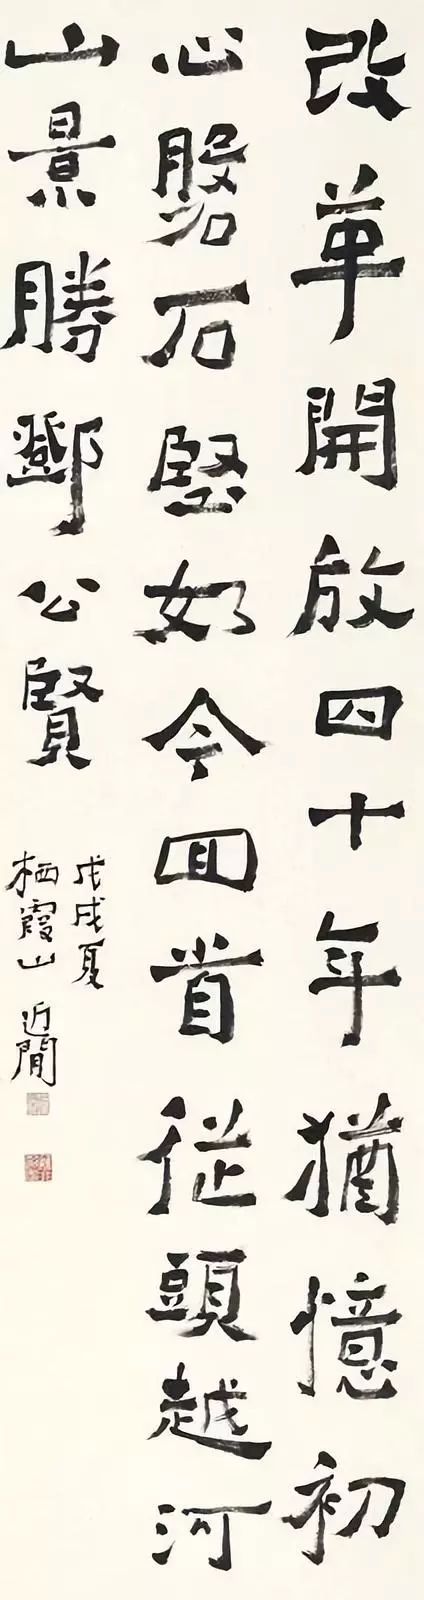 改革開放四十年猶憶初
心磐石堅如今回首從頭越河
山景勝鄧公賢
戊戌夏
栖霞山 近閒